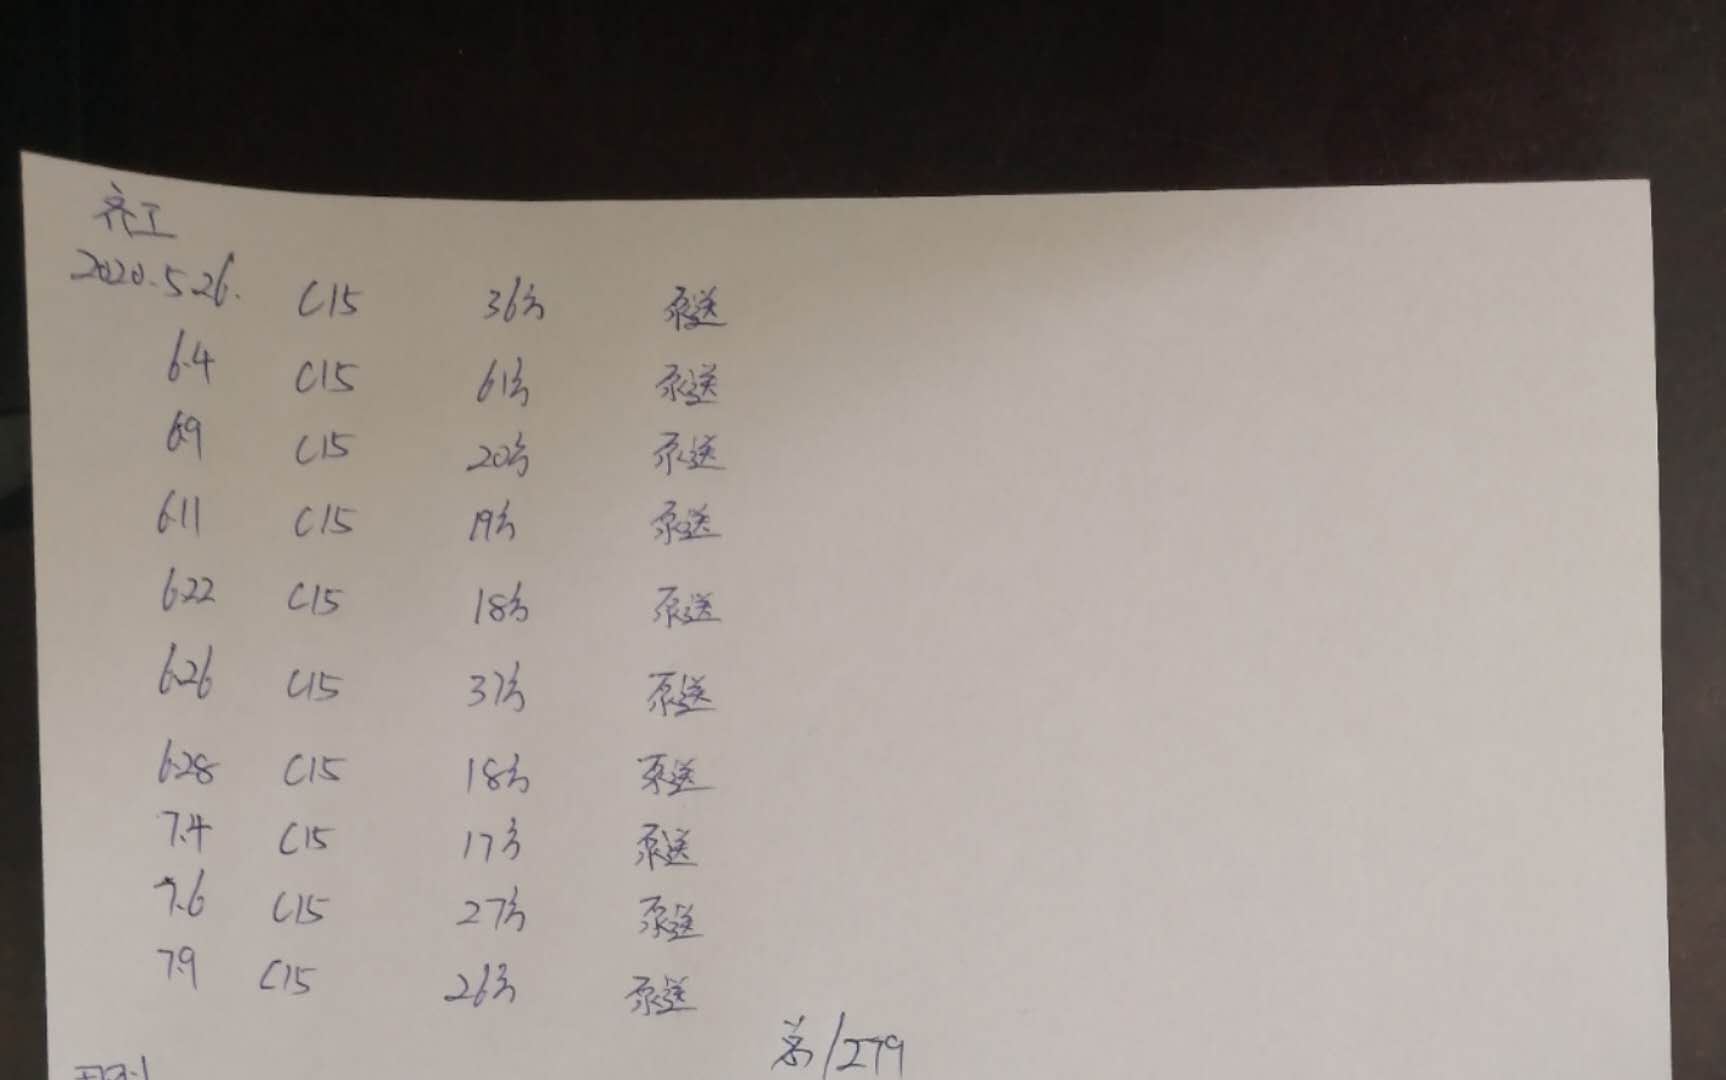 齐工
2020.5.26. C15 36方 泵送
6.4 C15 61方 泵送
6.9 C15 20方 泵送
6.11 C15 19方 泵送
6.22 C15 18方 泵送
6.26 C15 37方 泵送
6.28 C15 18方 泵送
7.4 C15 17方 泵送
7.6 C15 27方 泵送
7.9 C15 26方 泵送
总/279